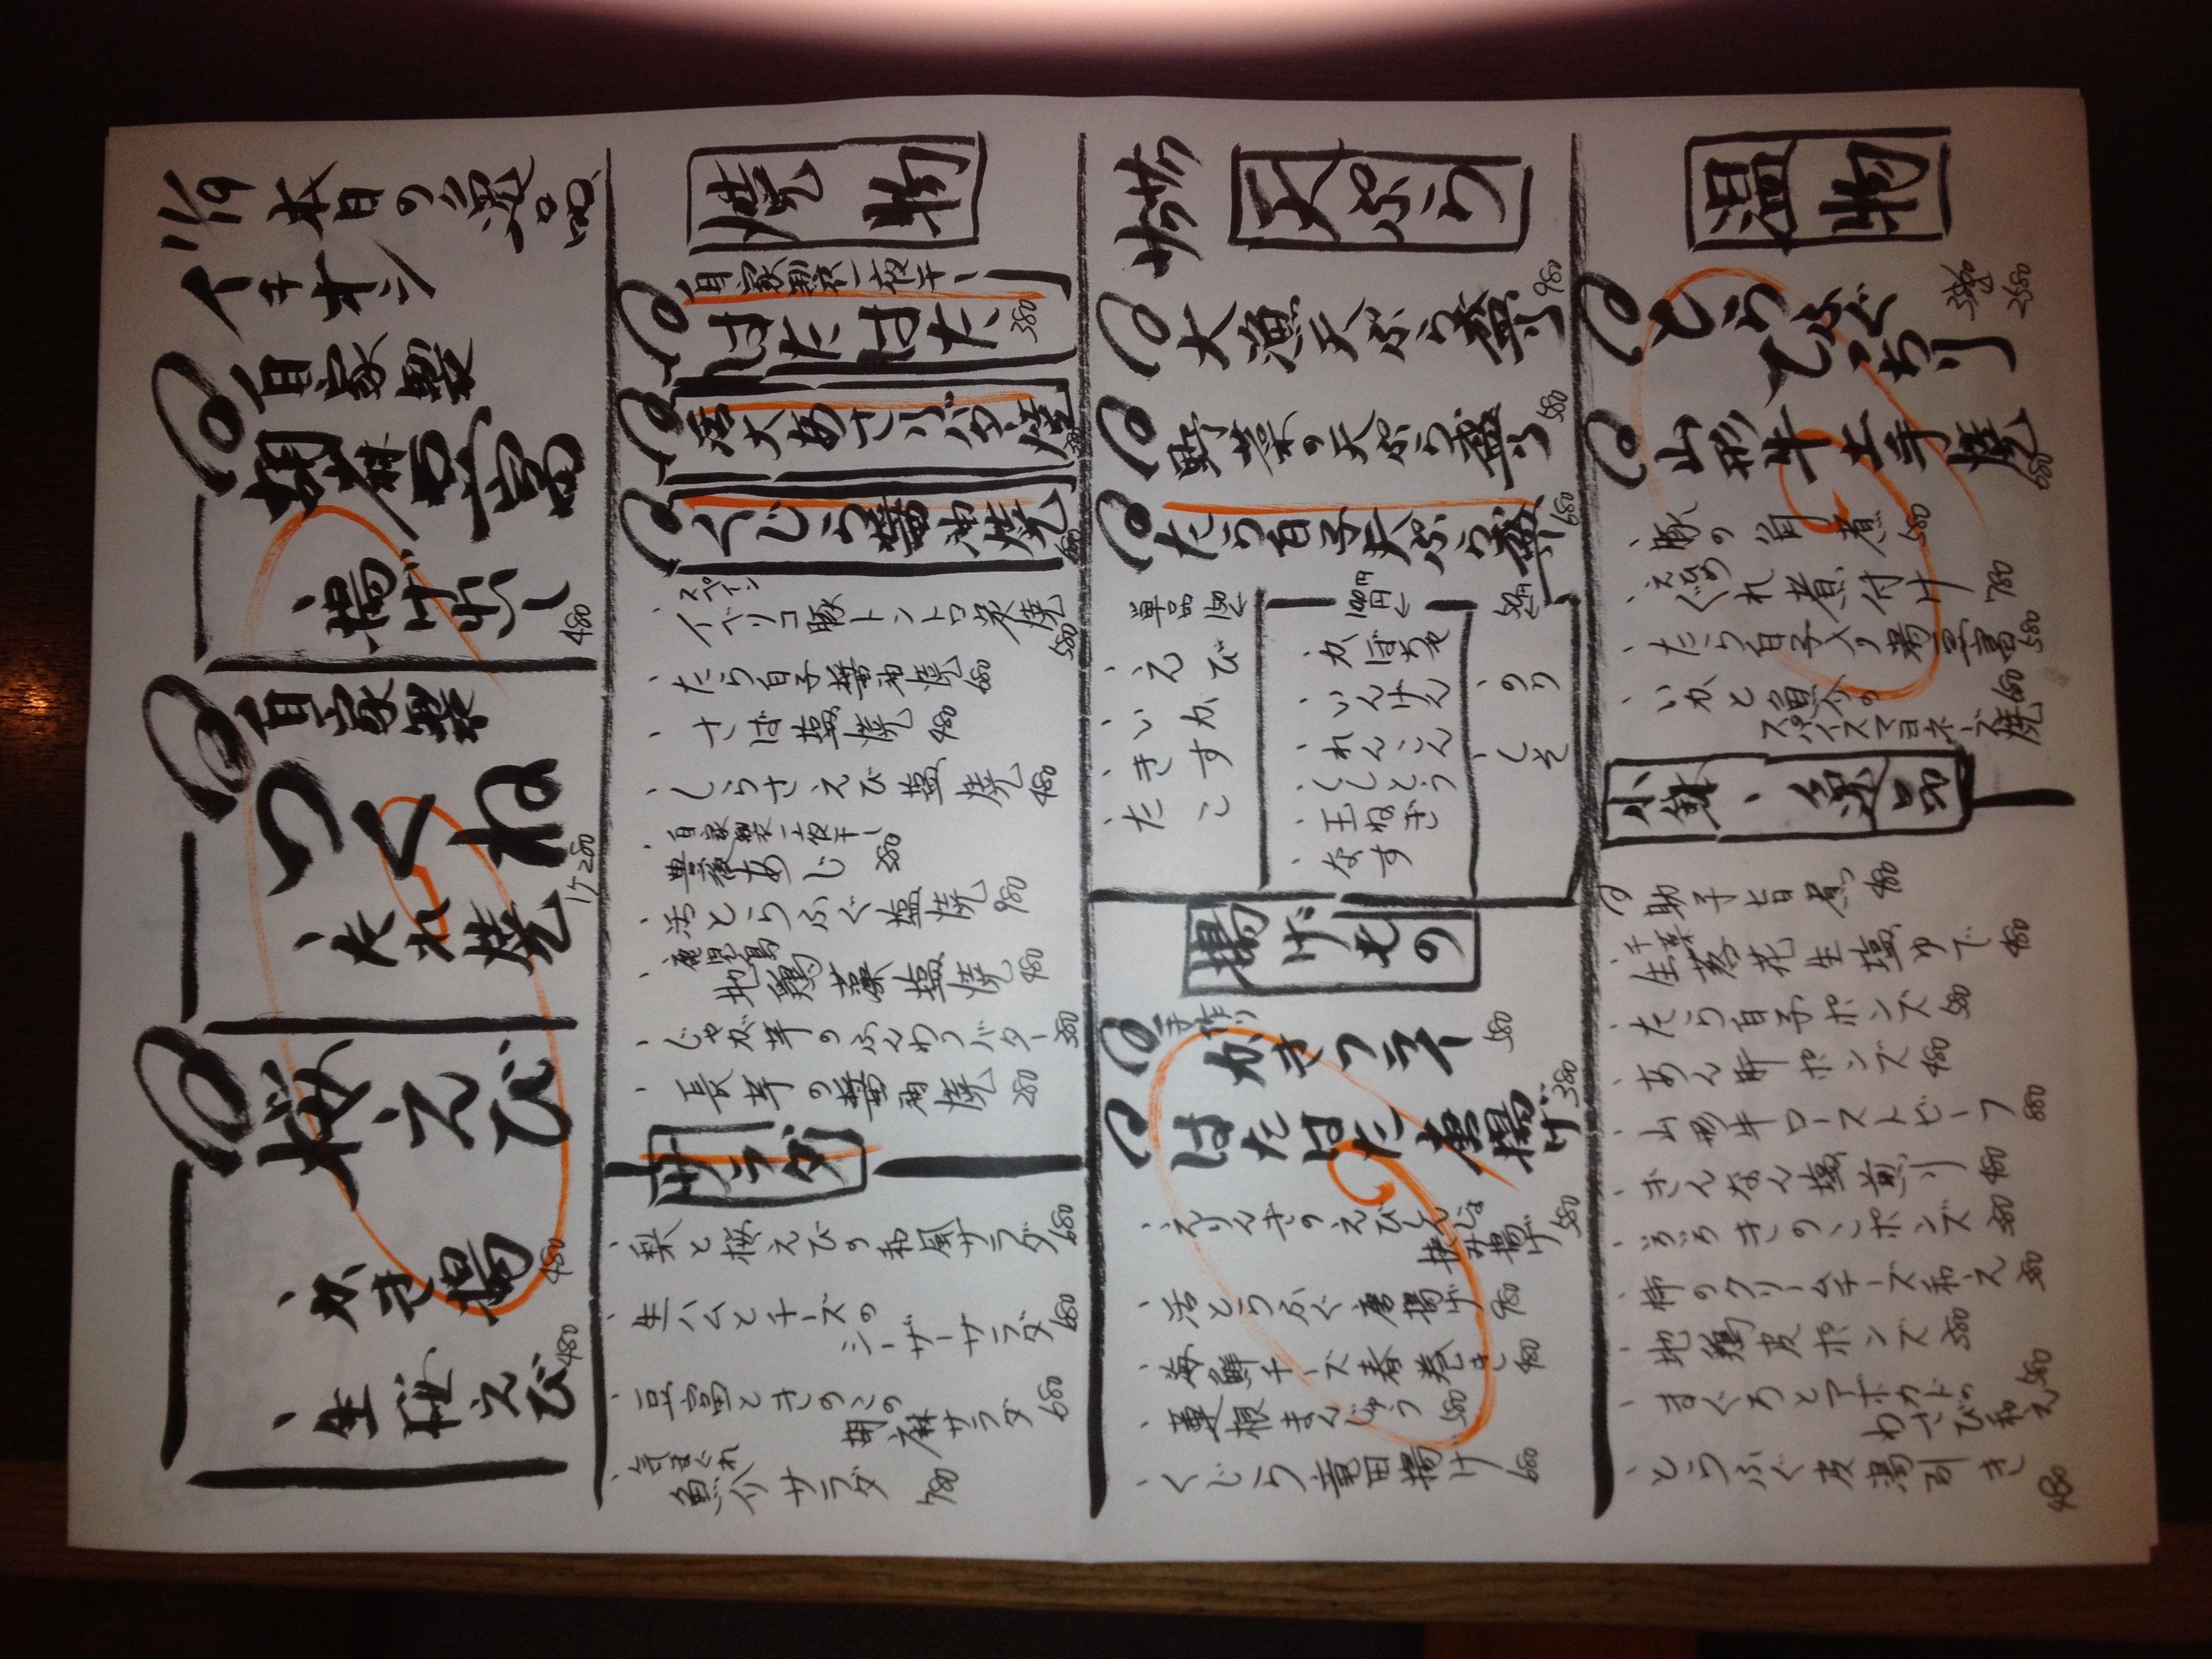 11/9 本日の逸品
イチオシ
自家製
胡麻豆富
揚げ出し 480
自家製
つくね
たれ焼 1ケ280
桜えび
かき揚 480
生桜えび 480
焼物
自家製一夜干し
はたはた 380
活大あさりバター焼
くじら醤油焼 680
スペイン
イベリコ豚トントロ炭焼 580
たら白子醤油焼 680
さば塩焼 480
しらさえび塩焼 480
自家製一夜干し
豊後あじ 380
活とらふぐ塩焼 980
鹿児島
地鶏藁塩焼 480
じゃが芋のふんわりバター 380
長芋の醤油焼 280
サラダ
梨と桜えびの和風サラダ 680
生ハムとチーズの
シーザーサラダ 680
豆富ときのこの
胡麻サラダ 680
気まぐれ
魚介サラダ 780
天ぷら
大漁天ぷら盛り 980
野菜の天ぷら盛り 580
たら白子天ぷら 680
単品 150円
えび
いか
きす
たこ
100円
かぼちゃ
いんげん
れんこん
ししとう
玉ねぎ
なす
50円
のり
しそ
揚げもの
手作り
かきフライ 580
はたはた唐揚げ 380
えりんぎのえびしんじょ
挟み揚げ 580
活とらふぐ唐揚げ 980
海鮮チーズ春巻き 480
蓮根まんじゅう 580
くじら竜田揚げ 680
温物
とらふぐ
てっちり 2580
山形牛土手焼 680
豚の角煮 580
えびめ
ぐれ煮付け 780
たら白子入り揚豆富 580
いかと魚介の
スパイスマヨネーズ焼 680
小鉢、逸品
助子旨煮 480
千葉
生落花生塩ゆで 480
たら白子ポンズ 580
あん肝ポンズ 480
山形牛ローストビーフ 880
ぎんなん塩煎り 480
きのこポンズ 380
柿のクリームチーズ和え 380
地鶏皮ポンズ 380
まぐろとアボカドの
わさび和え 580
とらふぐ皮湯引き 480